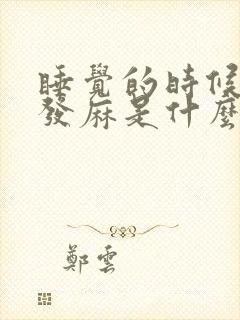 睡覺的時候
發麻是什麼
鄭雲